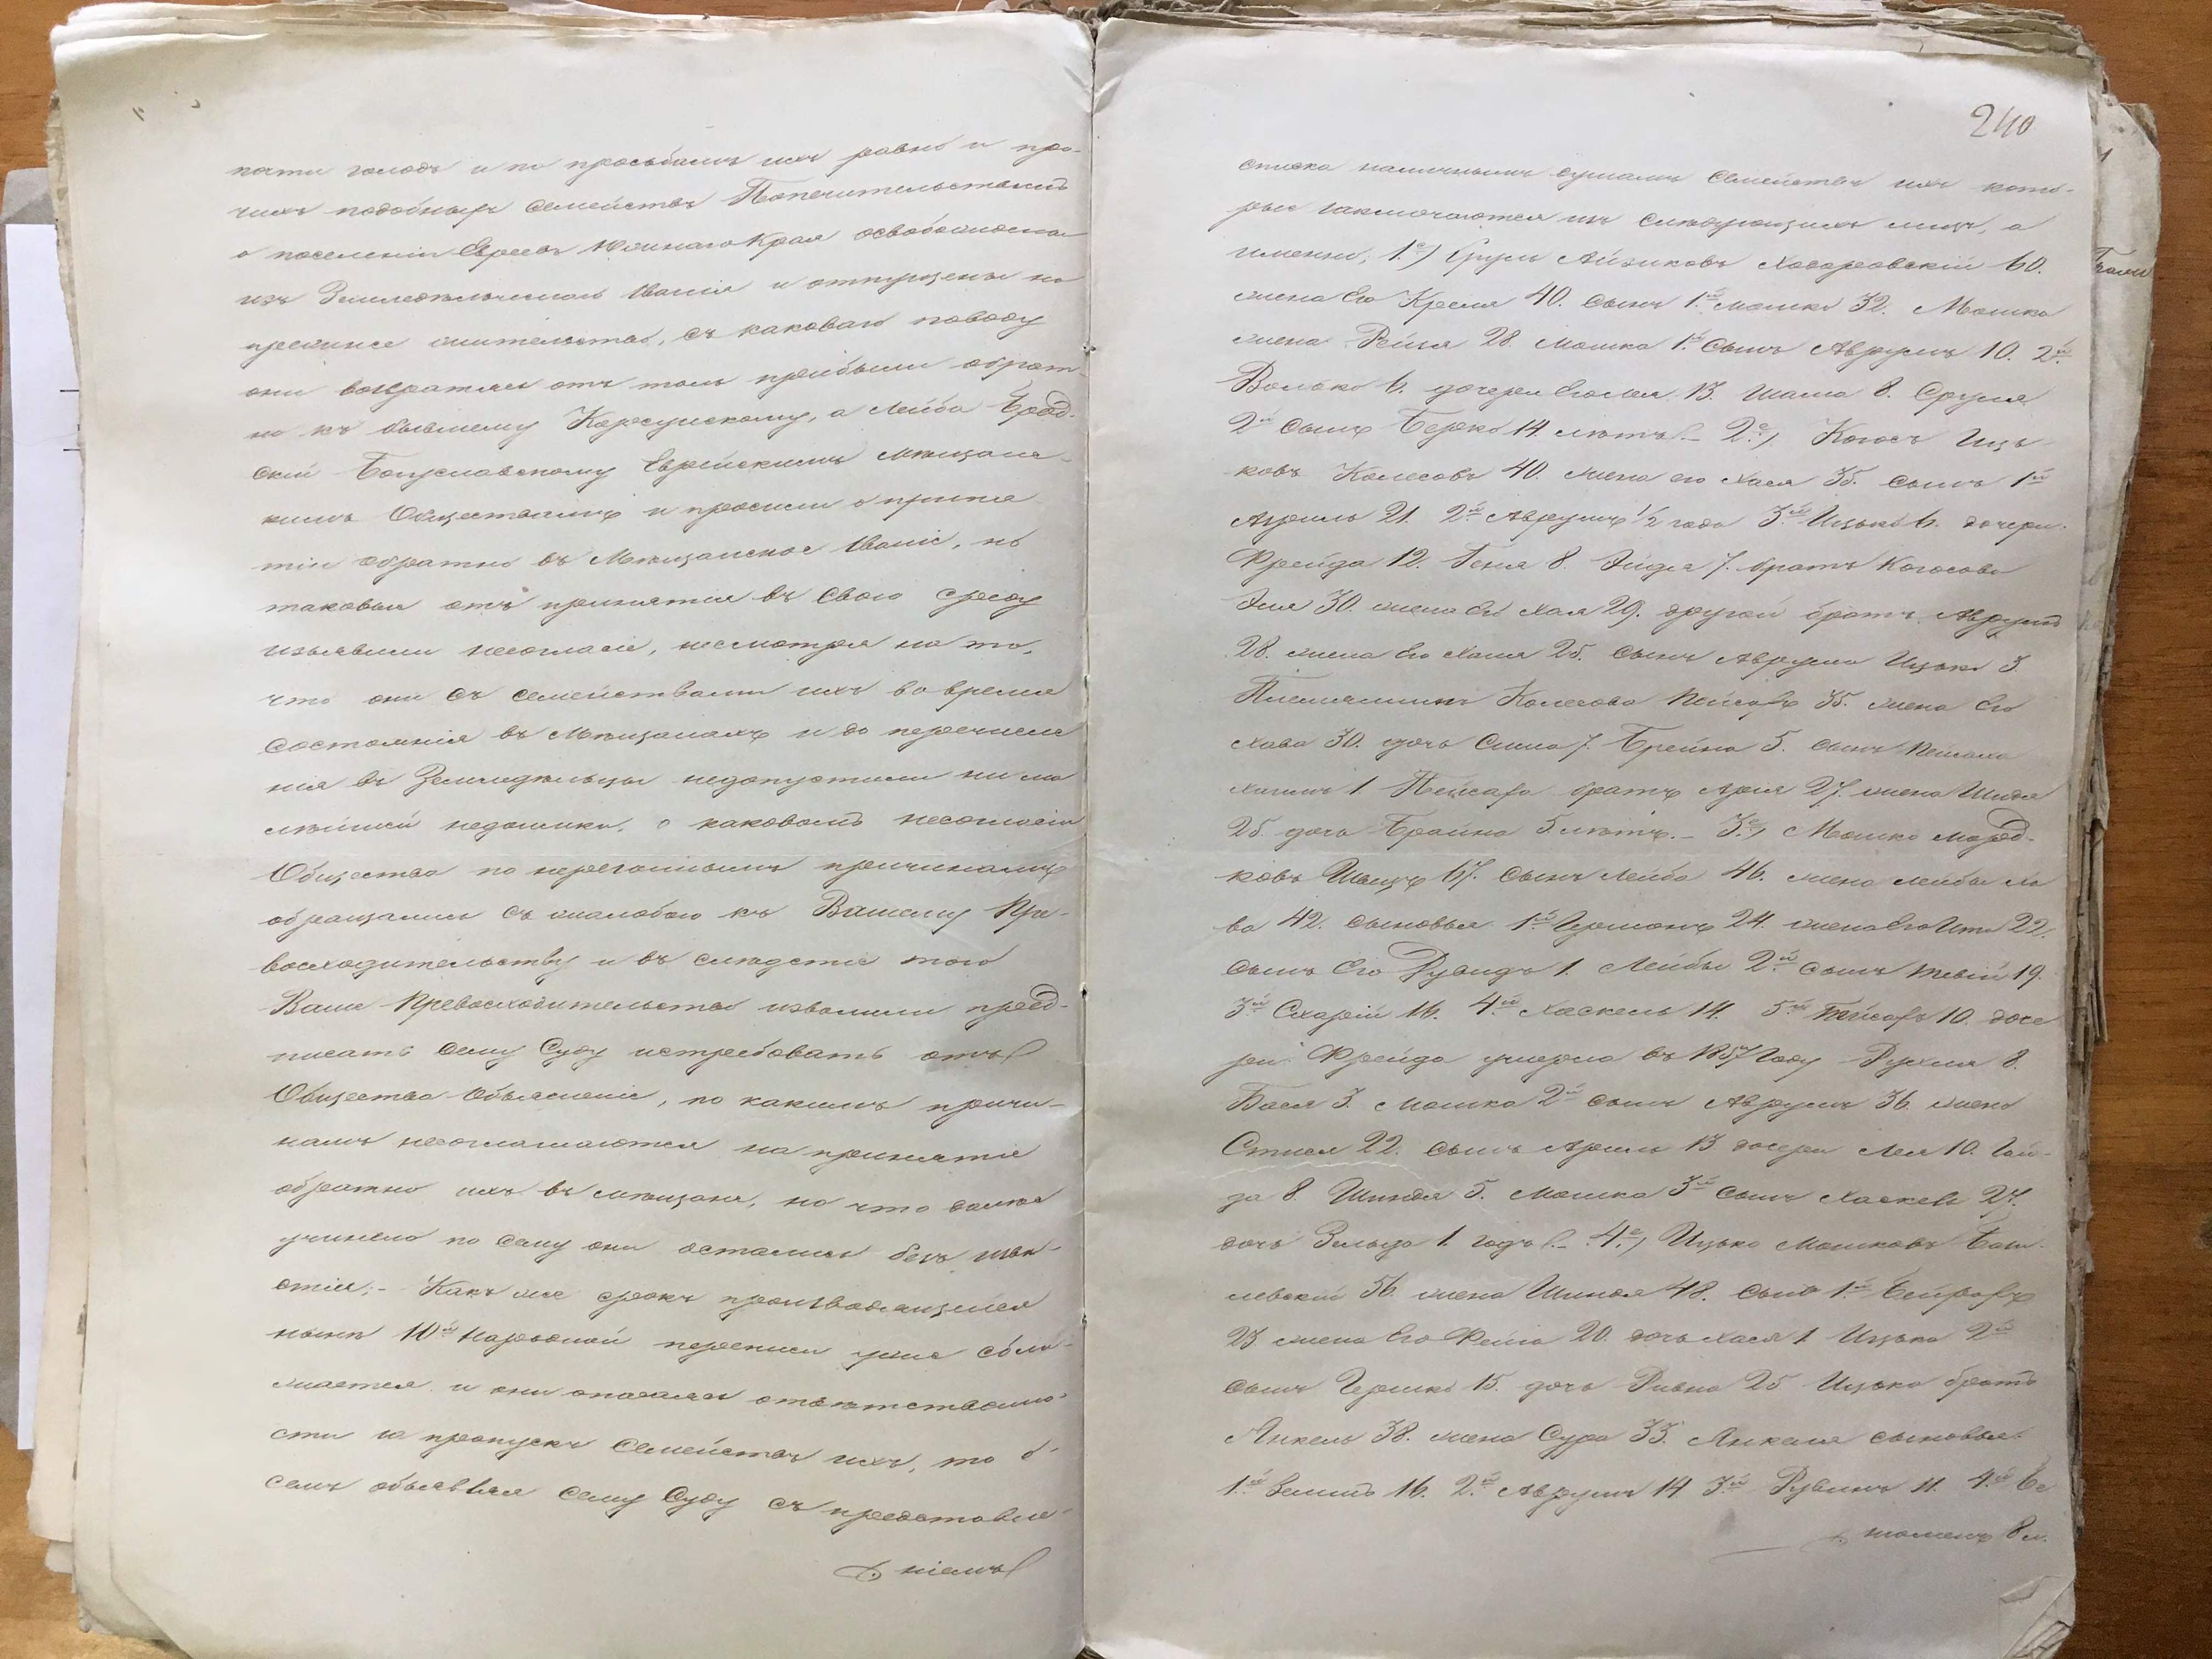 пѣти голодъ и по просьбамъ ихъ равно и про-
чихъ подобныхъ семействъ Попечительствомъ
о поселеніи Евреевъ Южнаго Края освобождены
изъ Земледѣльческаго званія и отпущены на
прежнее жительство, съ каковаго поводу
они возвратясь отъ толь прибыли обрат-
но къ бывшему Корсунскому, а Лейба Брод-
скій Богуславскому Еврейскимъ Мѣщанс-
кимъ Обществамъ и просили о приня
тіи обратно въ Мѣщанское званіе, но
таковыя отъ принятія въ свою среду
изъявили несогласіе, несмотря на то,
что они съ семействами ихъ во время
состоянія въ Мѣщанахъ и до перечисле
нія въ Земледѣльцы недопустили ни ма
лѣйшей недоимки, о каковомъ несогласіи
Общества по нерезоннымъ причинамъ
обращались съ жалобою къ Вашему Пре-
восходительству и въ слѣдствіе того
Ваше Превосходительство изволили пред-
писать сему Суду истребовать отъ
Общества объясненіе, по какимъ причи-
намъ несоглашаются на принятіе
обратно ихъ въ мѣщане, но что далѣе
учинено по сему они остались безъ извѣ-
стія;- Какъ же срокъ производящейся
нынѣ 10й Народной переписи уже сбли-
жается и они опасаясь отвѣтственно-
сти за пропускъ Семействъ ихъ, то о
семъ объявляя сему Суду съ представле-
ніемъ
240
списка наличнымъ душамъ Семействъ ихъ кото-
рыя заключаются изъ слѣдующихъ лицъ, а
именно; 1е) Сруль Айзиковъ Ходоровскій 60.
жена Его Крейня 40. сынъ 1й Мошко 32. Мошка
жена Рейзя 28. Мошка 1й сынъ Аврумъ 10. 2й
Волько 6. дочери Его Лея 13. Шама 8. Сруля
2й сынъ Берко 14. лѣтъ.- 2е) Когосъ Ицъ
ковъ Колесовъ 40. жена его Хася 35. сынъ 1й
Аръль 21. 2й Аврумъ 1/2 года 3й Ицько 6. дочери
Фрейда 12. Геня 8. Эйдля 7. братъ Когосова
Эля 30. жена Его Хая 29. другой братъ Аврумъ
28. жена Его Хана 25. сынъ Аврума Ицько 3.
Племянникъ Колесова Пейсахъ 35. жена Его
Хава 30. дочь Сима 7. Брейна 5. сынъ Пейсаха
Хаимъ 1. Пейсаха братъ Арія 27. жена Шейдля
25. дочь Брайна 5 лѣтъ.- 3е) Мошко Морд-
ковъ Швецъ 67. сынъ Лейба 46. жена Лейбы Ха
ва 42. сыновья 1й Гершонъ 24. жена Его Ита 22.
сынъ Его Рувинъ 1. Лейбы 2й сынъ Тевій 19.
3й Схарій 16. 4й Хаскель 14. 5й Пейсахъ 10. доче
ри Фрейда умерла въ 1857 Году Рухля 8.
Бася 3. Мошка 2й сынъ Аврумъ 36. жена
Стися 22. сынъ Аръль 13 дочери Лея 10. Гой-
да 8. Шиндля 5. Мошка 3й сынъ Хаскель 27.
дочь Зельда 1. годъ.- 4е) Ицько Мошковъ Бог-
левскій 56. жена Шиндля 48. сынъ 1й Сейрахъ
23. жена Его Фейга 20. дочь Хася 1. Ицька 2й
сынъ Гершко 15. дочь Ривка 25 Ицька братъ
Янкель 38. жена Сура 33. Янкеля сыновья
1й Зелигъ 16. 2й Аврумъ 14 3й Рувинъ 11. 4й Бе
8 л.